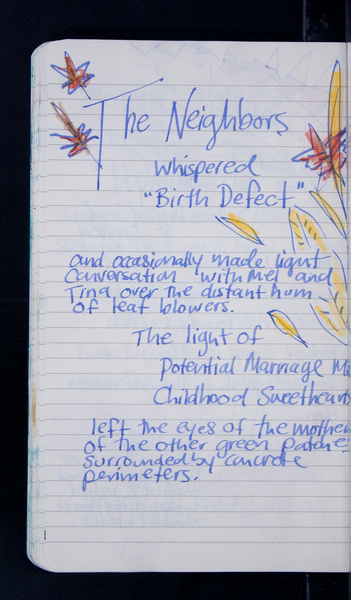 The Neighbors
Whispered
"Birth Defect"
and occasionally made light
conversation with Mel and
Tina over the distant hum
of leaf blowers.
The light of
Potential Marriage
Childhood Sweethearts
left the eyes of the mothers
of the other green patches
surrounded by concrete
perimeters.